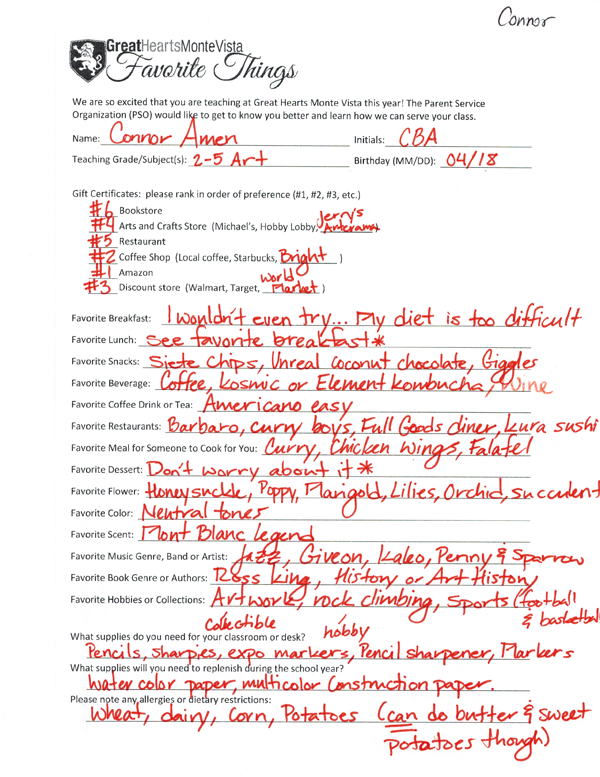 Connor
GreatHeartsMonteVista
Favorite Things
We are so excited that you are teaching at Great Hearts Monte Vista this year! The Parent Service
Organization (PSO) would like to get to know you better and learn how we can serve your class.
Name: Connor Amen Initials: CBA
Teaching Grade/Subject(s): 2-5 Art Birthday (MM/DD): 04/18
Gift Certificates: please rank in order of preference (#1, #2, #3, etc.)
#6 Bookstore
#4 Arts and Crafts Store (Michael's, Hobby Lobby, Jerry's Arterama)
#5 Restaurant
#2 Coffee Shop (Local coffee, Starbucks, Bright )
#1 Amazon
#3 Discount store (Walmart, Target, World Market )
Favorite Breakfast: I wouldn't even try... My diet is too difficult
Favorite Lunch: see favorite breakfast*
Favorite Snacks: Siete chips, Unreal coconut chocolate, Giggles
Favorite Beverage: Coffee, Kosmic or Element kombucha, Wine
Favorite Coffee Drink or Tea: Americano easy
Favorite Restaurants: Barbaro, curry boys, Full Goods diner, kura sushi
Favorite Meal for Someone to Cook for You: Curry, Chicken wings, Falafel
Favorite Dessert: Don't worry about it*
Favorite Flower: Honeysuckle, Poppy, Marigold, Lilies, Orchid, succulent
Favorite Color: Neutral tones
Favorite Scent: Mont Blanc legend
Favorite Music Genre, Band or Artist: Jazz, Giveon, Kaleo, Penny & Sparrow
Favorite Book Genre or Authors: Ross King, History or Art History
Favorite Hobbies or Collections: Artwork, rock climbing, sports (football & basketball
collectible hobby
What supplies do you need for your classroom or desk?
Pencils, sharpies, expo markers, Pencil sharpener, Markers
What supplies will you need to replenish during the school year?
Water color paper, multicolor construction paper.
Please note any allergies or dietary restrictions:
Wheat, dairy, Corn, Potatoes (can do butter & sweet
potatoes though)